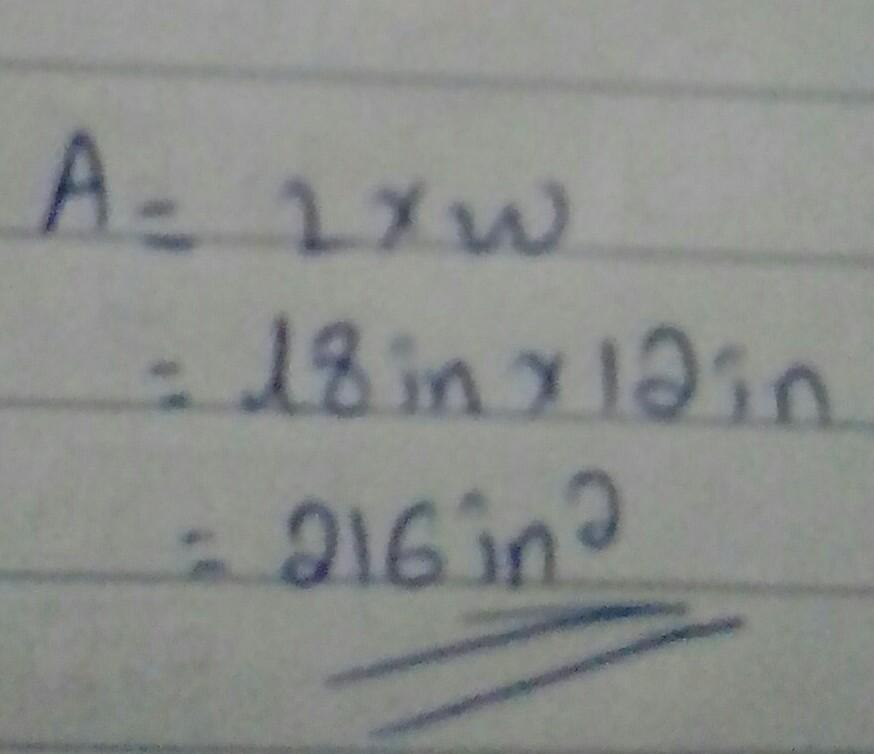 A = l x w
= 18 in x 12 in
= 216 in²